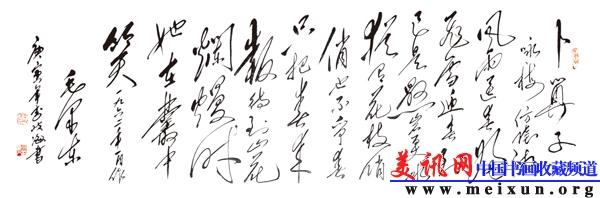 卜算子
咏梅
风雨送春归
飞雪迎春到
已是悬崖百丈冰
犹有花枝俏
俏也不争春
只把春来
报待到山花
烂熳时
她在丛中
笑 一九六一年
毛泽东
庚寅年 书
美讯网 中国书画收藏频道
www.meixun.org